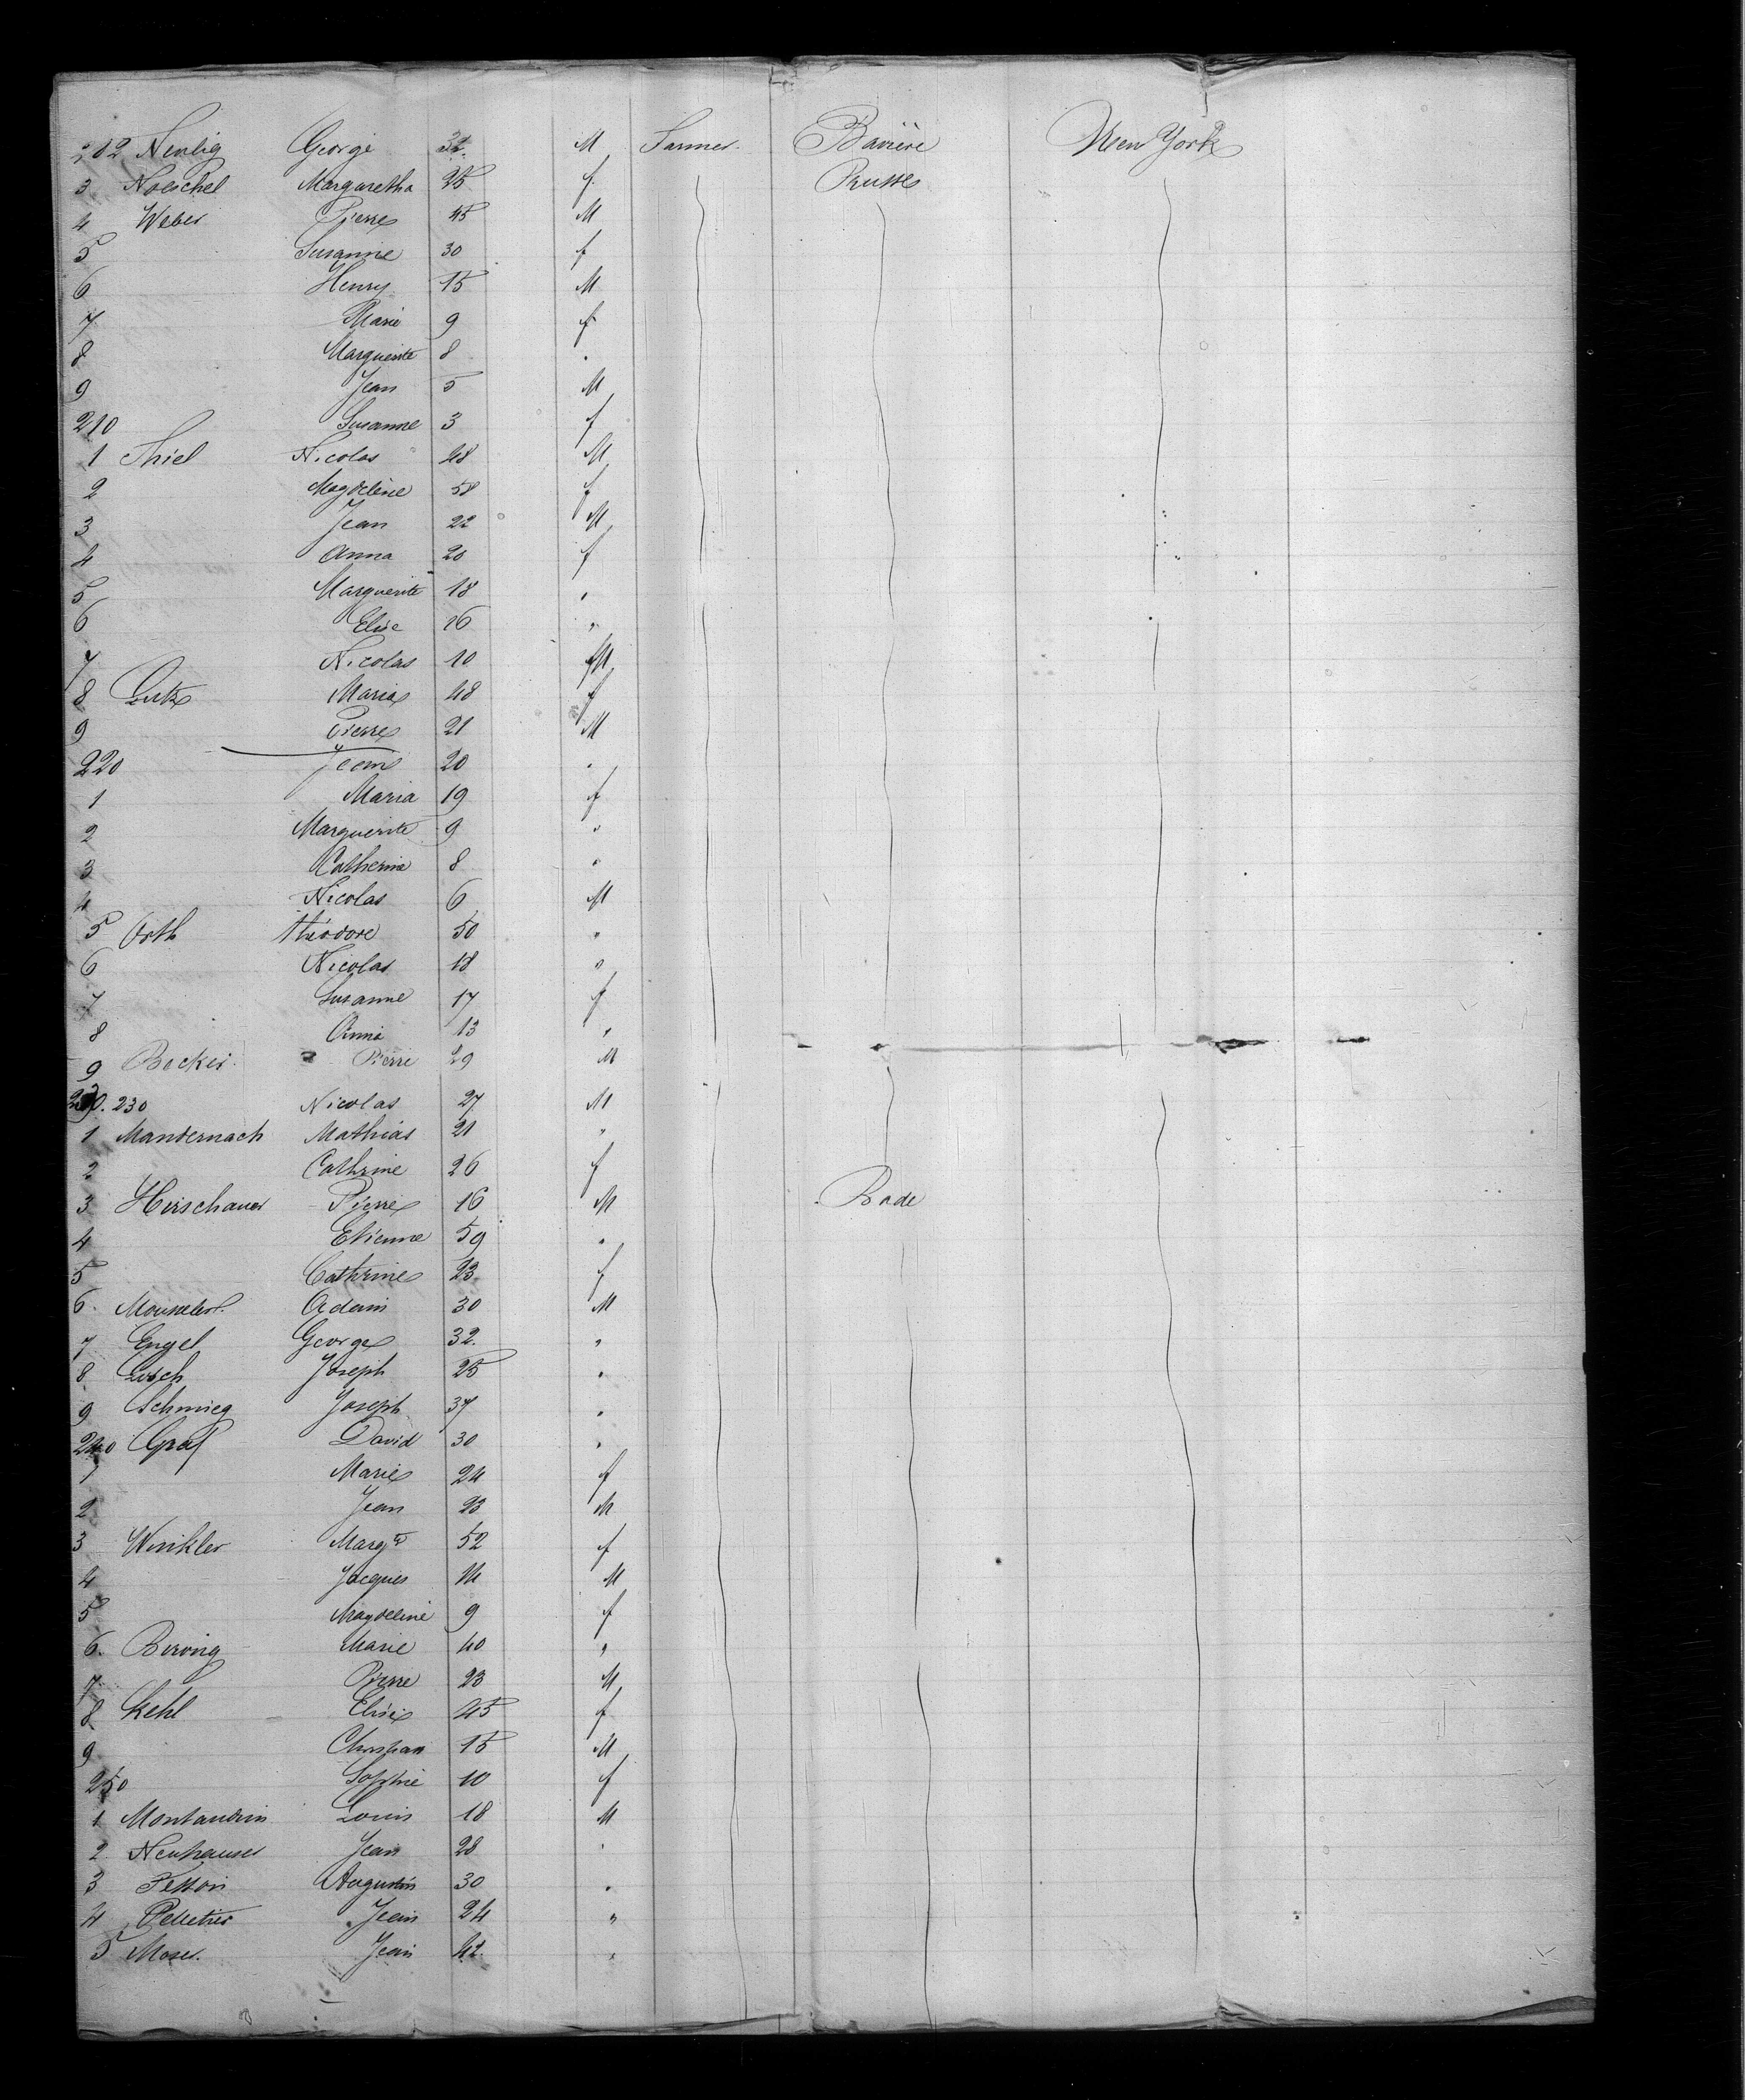 202 Neulig George 32 M Farmer Bavière New York
3 Noeschel Margaretha 25 f Prusse
4 Weber Pierre 45 M
5 Susanne 30 f
6 Henry 15 M
7 Marie 9 f
8 Marguerite 8 "
9 Jean 5 M
210 Susanne 3 f
1 Thiel Nicolas 48 M
2 Magdeleine 58 f
3 Jean 22 M
4 Anna 20 f
5 Marguerite 18 "
6 Elise 16 "
7 Nicolas 10 M
8 Lutz Maria 48 f
9 Pierre 21 M
220 Jean 20 "
1 Maria 19 f
2 Marguerite 9 "
3 Catherine 8 "
4 Nicolas 6 M
5 Orth théodore 50 "
6 Nicolas 18 "
7 Susanne 17 f
8 Anna 13 "
9 Becker Pierre 29 M
230 Nicolas 27 M
1 Mandernach Mathias 21 "
2 Cathrine 26 f
3 Hirschauer Pierre 16 M Bade
4 Etienne 59 "
5 Cathrine 23 f
6. Adam 30 M
7 Engel George 32. "
8 Lisch Joseph 25 "
9 Schmieg Joseph 37 "
240 Graf David 30 "
1 Marie 24 f
2 Jean 23 M
3 Winkler Margte 52 f
4 Jacques 14 M
5 Magdeleine 9 f
6. Berving Marie 40 "
7. Pierre 23 M
8 Kehl Elise 45 f
9 Christian 15 M
250 Sophie 10 f
1 Montandrin Louis 18 M
2 Neuhauser Jean 28 "
3 Tesson Augustin 30 "
4 Pelletier Jean 24 "
5 Moser. Jean 42 "